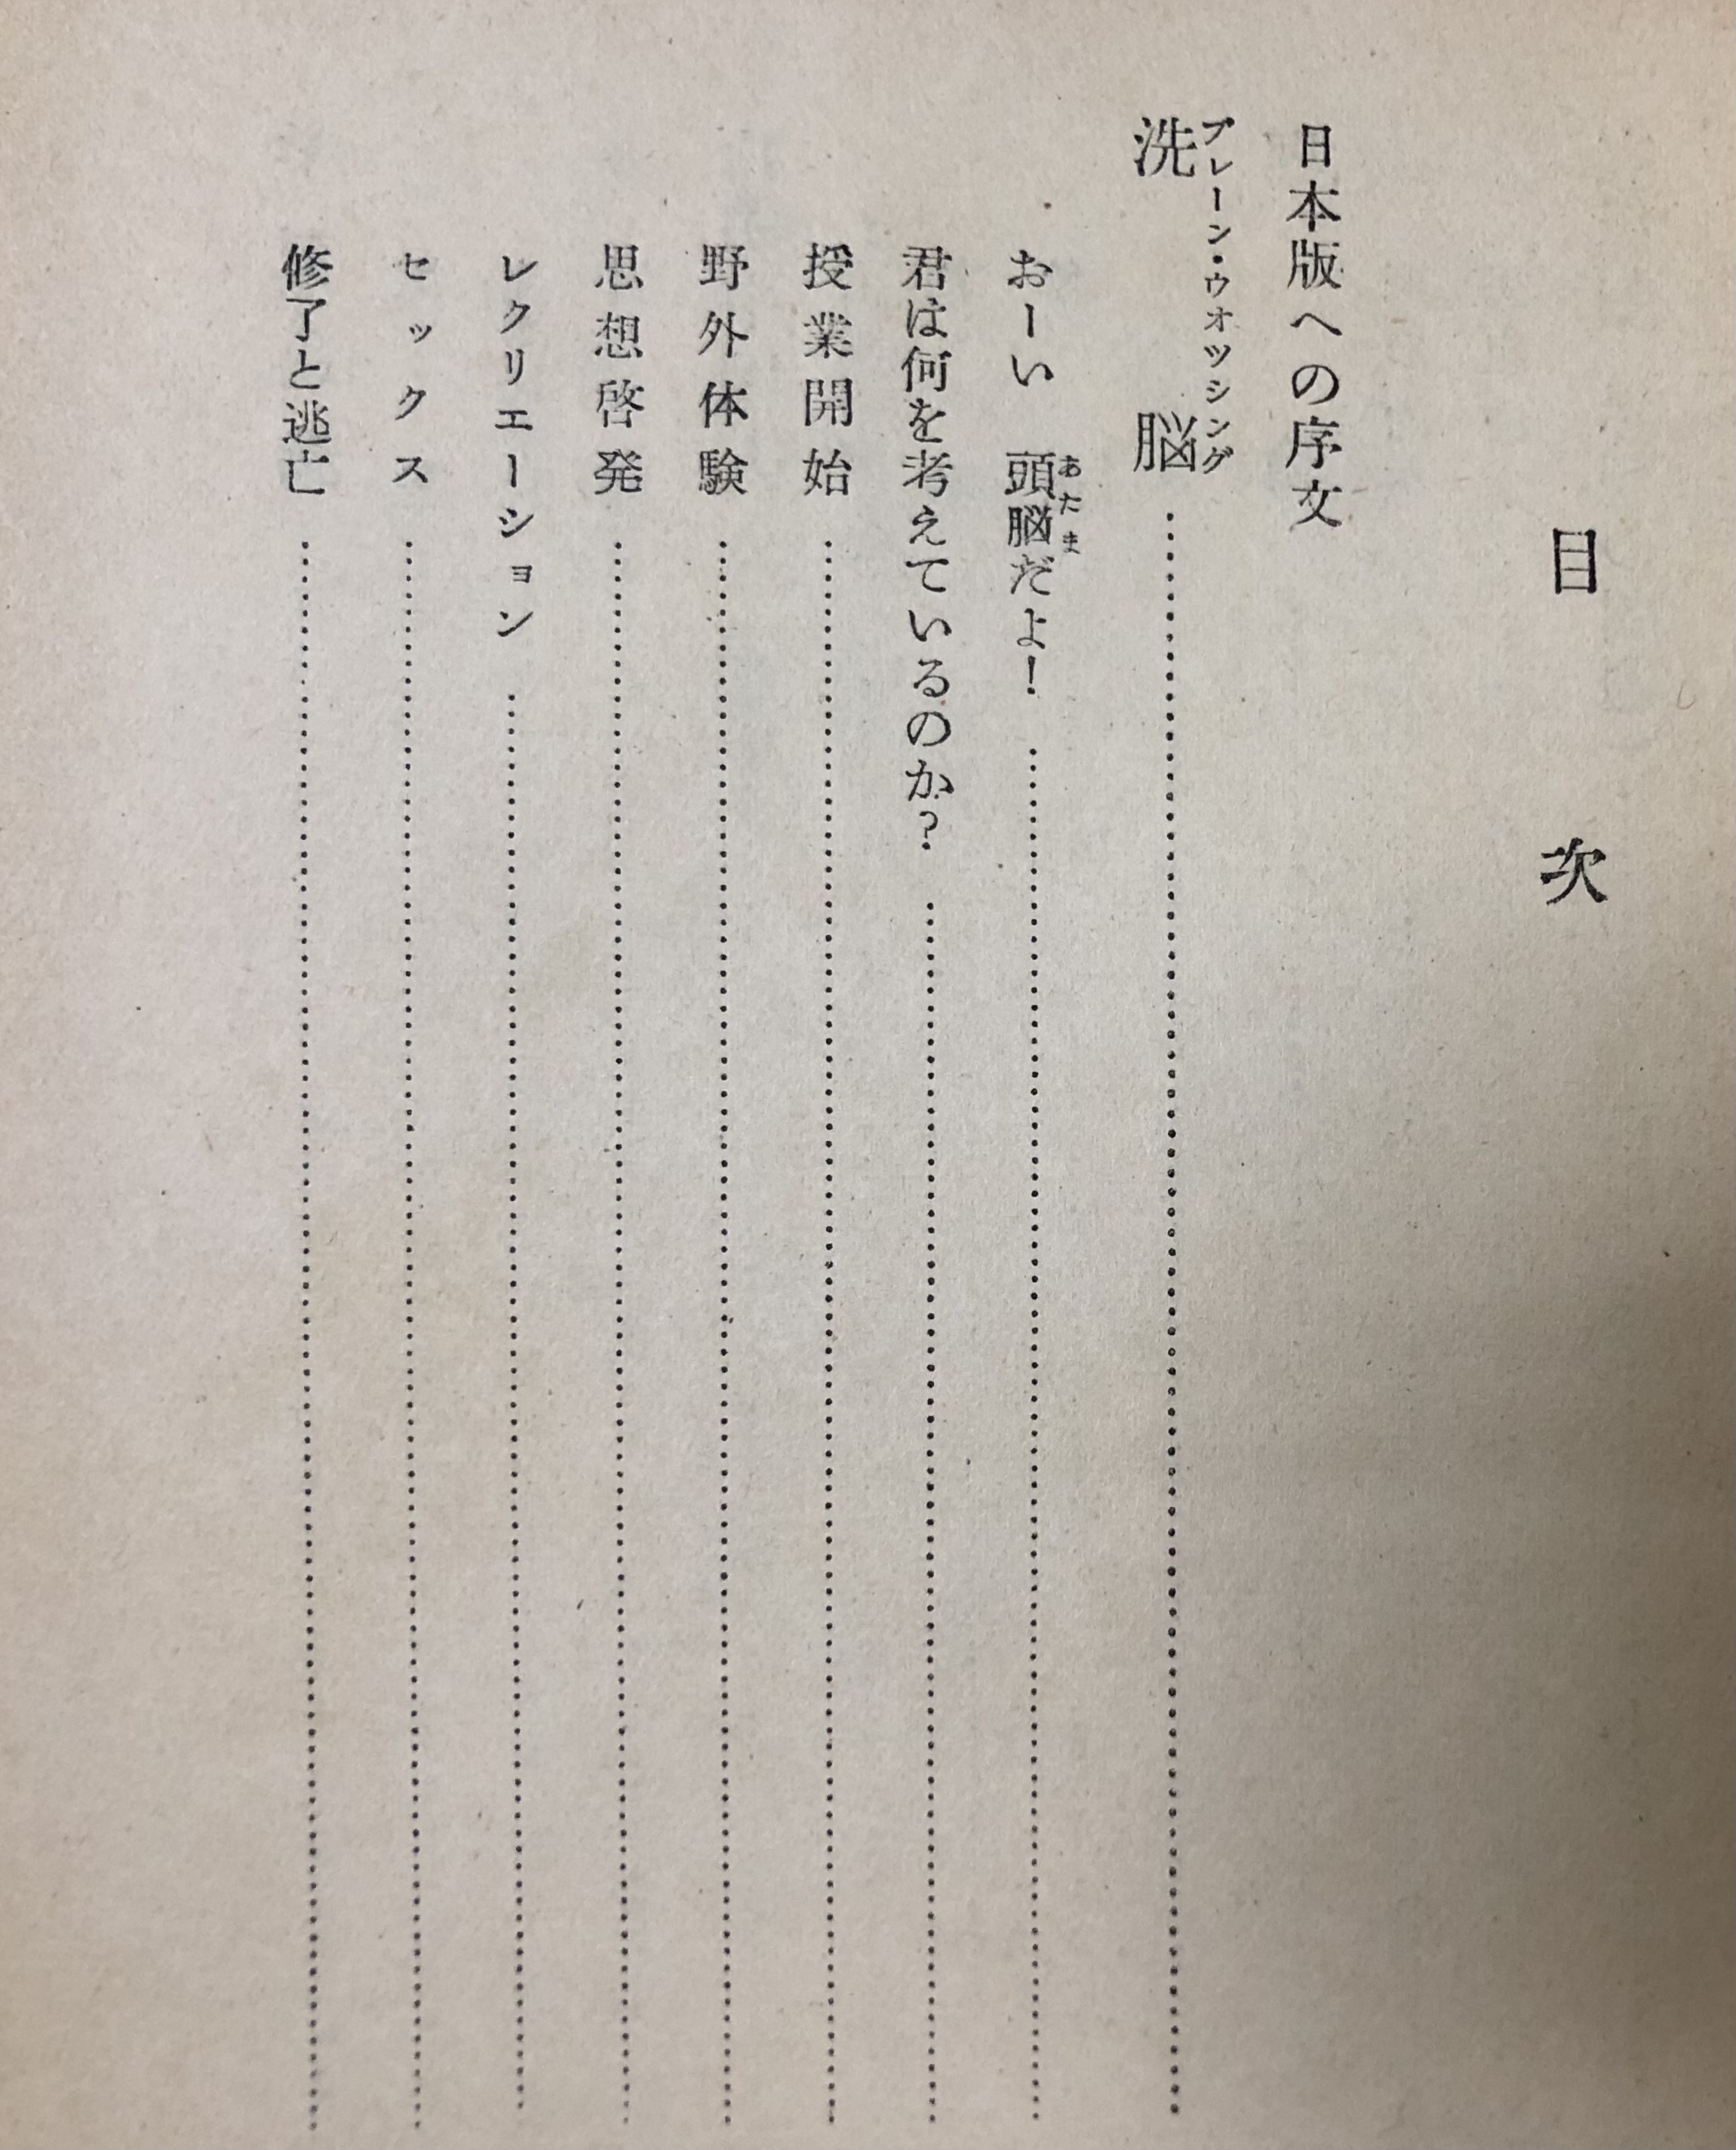 目次
日本版への序文
ブレーン・ウオッシング
洗脳
おーい 頭脳だよ！
あたま
君は何を考えているのか？
授業開始
野外体験
思想啓発
レクリエーション
セックス
修了と逃亡